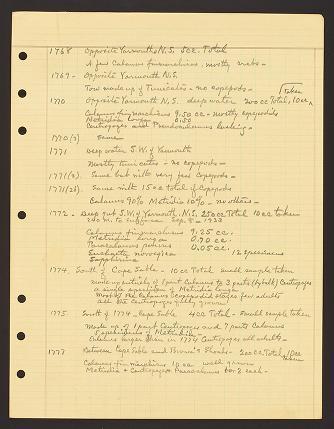 1768 Opposite Yarmouth N.S. 5 cc. Total
A few Calanus finmarchicus, mostly crabs -
1769 - Opposite Yarmouth N.S.
Tow made up of Tunicates - no copepods -
taken
1770 Opposite Yarmouth N.S. deep water 200 cc Total, 10 cc
Calanus finmarchicus 9.50 cc - mostly copepodids
Metridia longa 0.50
Centropages and Pseudocalanus lacking -
1770(?) Same
1771 Deep water S.W. of Yarmouth
Mostly tunicates - no copepods -
1771(?). Same but with very few copepods -
1771(28). Same with 15 cc total of Copepods
Calanus 90% Metridia 10% - no others -
1772 - Deep cut S.W. of Yarmouth, N.S. 250 cc Total 10 cc taken
240 m. to surface Sep. 8 - 1932
Calanus finmarchicus 9.25 cc.
Metridia longa 0.70 cc.
Paracalanus parvus 0.05 cc.
Euchaeta norvegica 12 specimens
1774. South of Cape Sable - 10 cc Total small sample taken
made up entirely of 1 part Calanus to 3 parts (by bulk) Centropages
a single specimen of Metridia longa
Mostly the Calanus copepodid stages few adults
all the Centropages fully grown.
1775 South of 1774 - Cape Sable 4 cc Total - small sample taken
Made up of 1 part Centropages and 7 parts Calanus
specimens of Metridia -
Calanus larger than in 1774 Centropages all adults -
1777 Between Cape Sable and Brown's Shoals - 200 cc Total, 10 cc taken
Calanus finmarchicus 10 cc well grown
Metridia & Centropages Paracalanus 6 or 8 each -